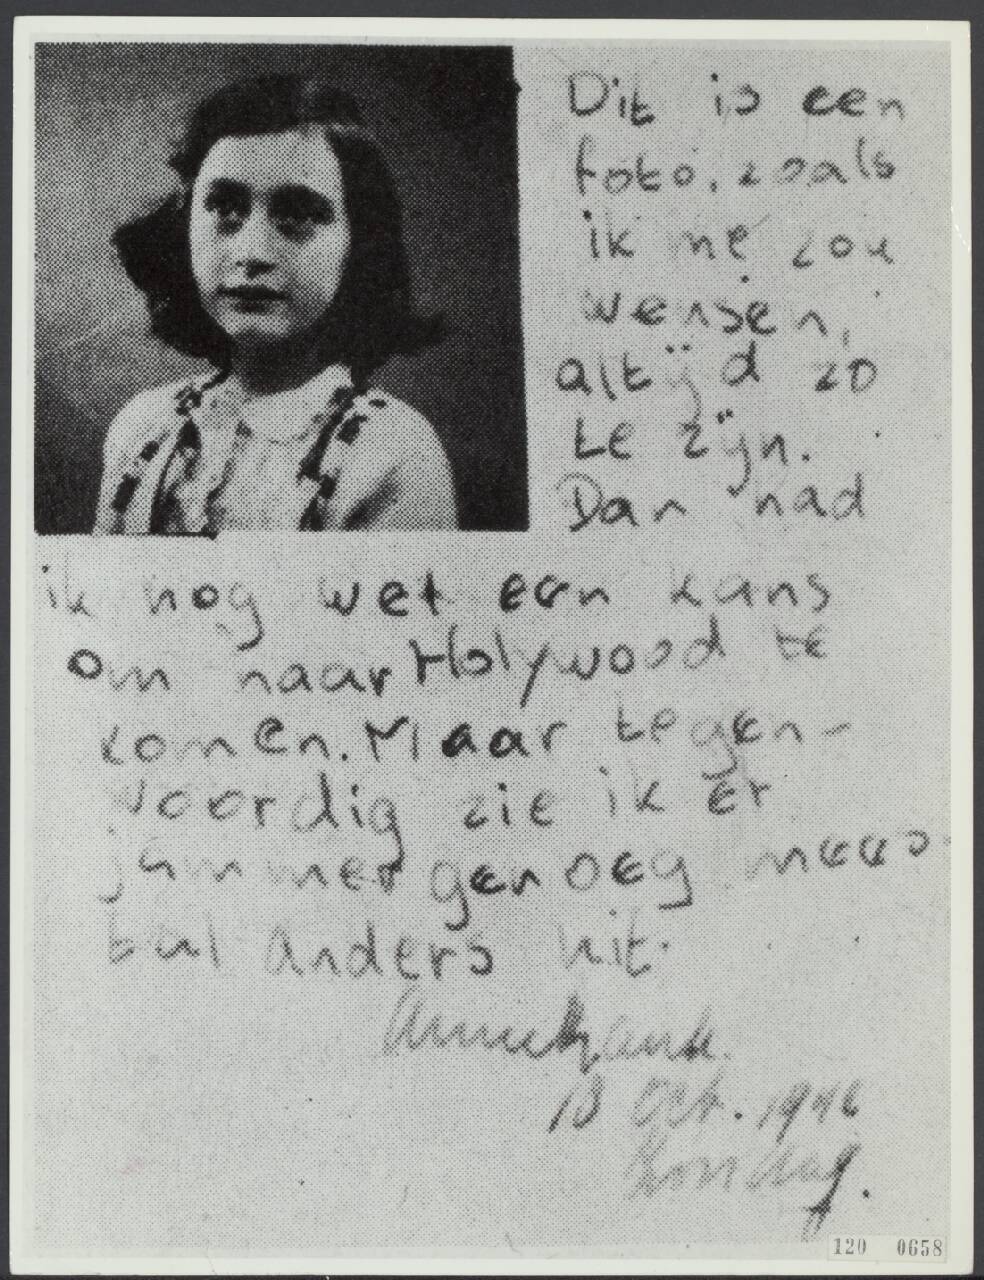 Dit is een
foto, zoals
ik me zou
wensen,
altijd zo
te zijn.
Dan had
ik nog wel een kans
om naar Holywood te
komen. Maar tegen-
woordig zie ik er
jammer genoeg mees-
tal anders uit.
Annefrank.
18 Oct. 1942
Zondag.
120 0658